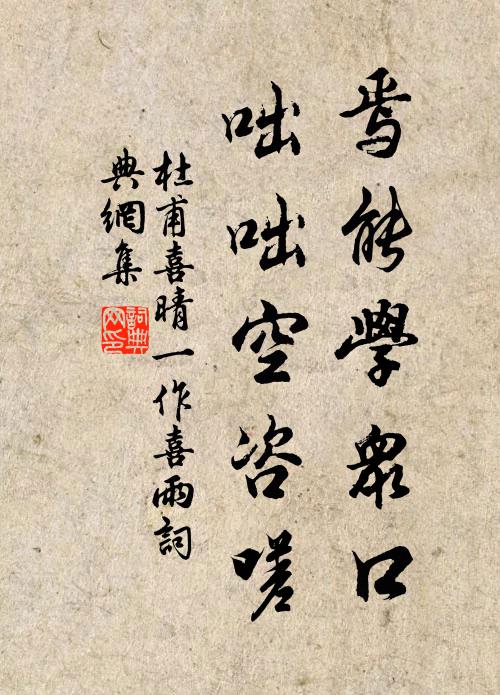 焉能學衆口
咄咄空咨嗟
杜甫喜晴一作喜雨詞
典網集
詞典
网印